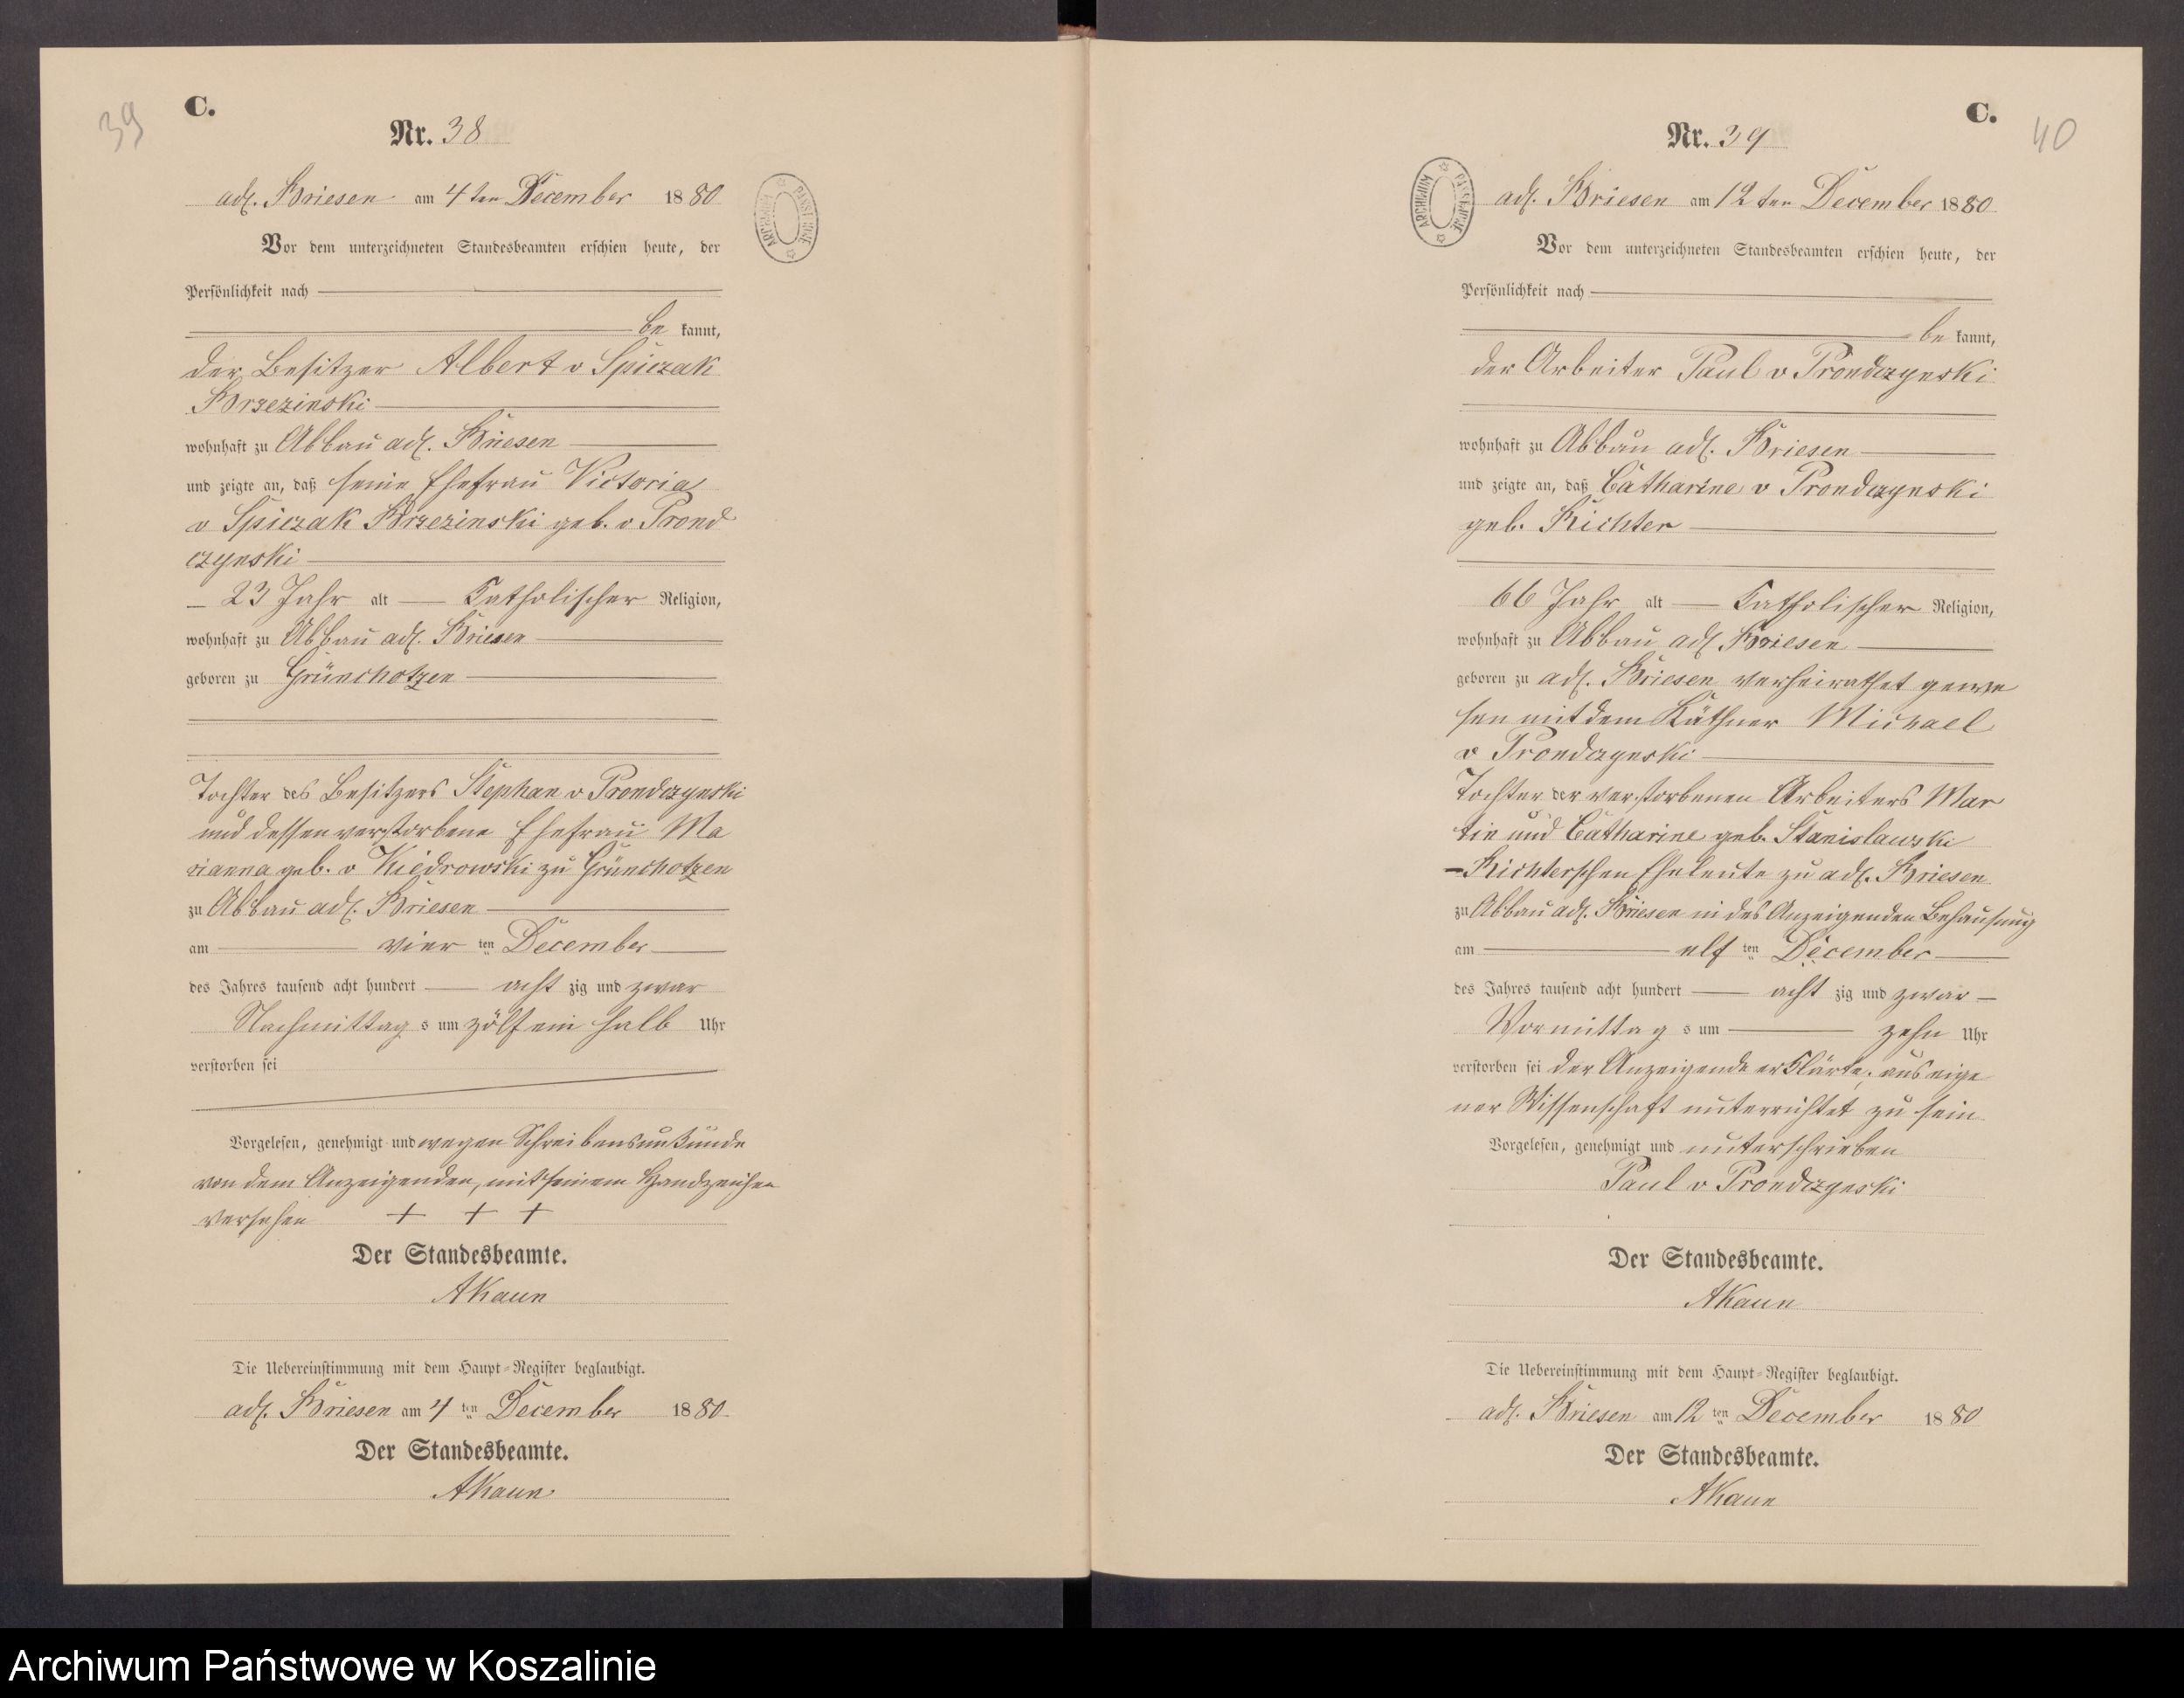 39
C.
Nr. 38
adl. Briesen am 4ten December 1880
Vor dem unterzeichneten Standesbeamten erschien heute, der
Persönlichkeit nach
be kannt,
der Besitzer Albert v Spiczak
Brzezinski
wohnhaft zu Abbau adl. Briesen
und zeigte an, daß seine Ehefrau Victoria
v Spiczak Brzezinski geb. v Prond
czynski
23 Jahr alt Katholischer Religion,
wohnhaft zu Abbau adl. Briesen
geboren zu Grünchotzen
Tochter des Besitzers Stephan v Prondczynski
und dessen verstorbene Ehefrau Ma
rianna geb. v Kiedrowski zu Grünchotzen
zu Abbau adl. Briesen
am vier ten December
des Jahres tausend acht hundert acht zig und zwar
Nachmittag s um zölf ein halb Uhr
verstorben sei
Vorgelesen, genehmigt und wegen Schreibensunkunde
von dem Anzeigenden, mit seinem Handzeichen
versehen + + +
Der Standesbeamte.
AKaun
Die Uebereinstimmung mit dem Haupt-Register beglaubigt.
adl. Briesen am 4 ten December 1880.
Der Standesbeamte.
AKaun
ARCHIWUM PAŃSTWOWE
C.
40
Nr. 39
ARCHIWUM PAŃSTWOWE
adl. Briesen am 12 ten December 1880
Vor dem unterzeichneten Standesbeamten erschien heute, der
Persönlichkeit nach
be kannt,
der Arbeiter Paul v Prondczynski
wohnhaft zu Abbau adl. Briesen
und zeigte an, daß Catharine v Prondczynski
geb. Richter
66 Jahr alt Katholischer Religion,
wohnhaft zu Abbau adl Briesen
geboren zu adl. Briesen verheirathet gewe
sen mit dem Käthner Michael
v Prondczynski
Tochter der verstorbenen Arbeiters Mar
tin und Catharine geb. Stanislawski
-Richterschen Eheleute zu adl. Briesen
zu Abbau adl. Briesen in des Anzeigenden Behausung
am elf ten December
des Jahres tausend acht hundert acht zig und zwar
Vormittag s um zehn Uhr
verstorben sei der Anzeigende erklärte, aus eige
ner Wissenschaft unterrichtet zu sein
Vorgelesen, genehmigt und unterschrieben
Paul v Prondczynski
Der Standesbeamte.
AKaun
Die Uebereinstimmung mit dem Haupt-Register beglaubigt.
adl. Briesen am 12 ten December 1880
Der Standesbeamte.
AKaun
Archiwum Państwowe w Koszalinie